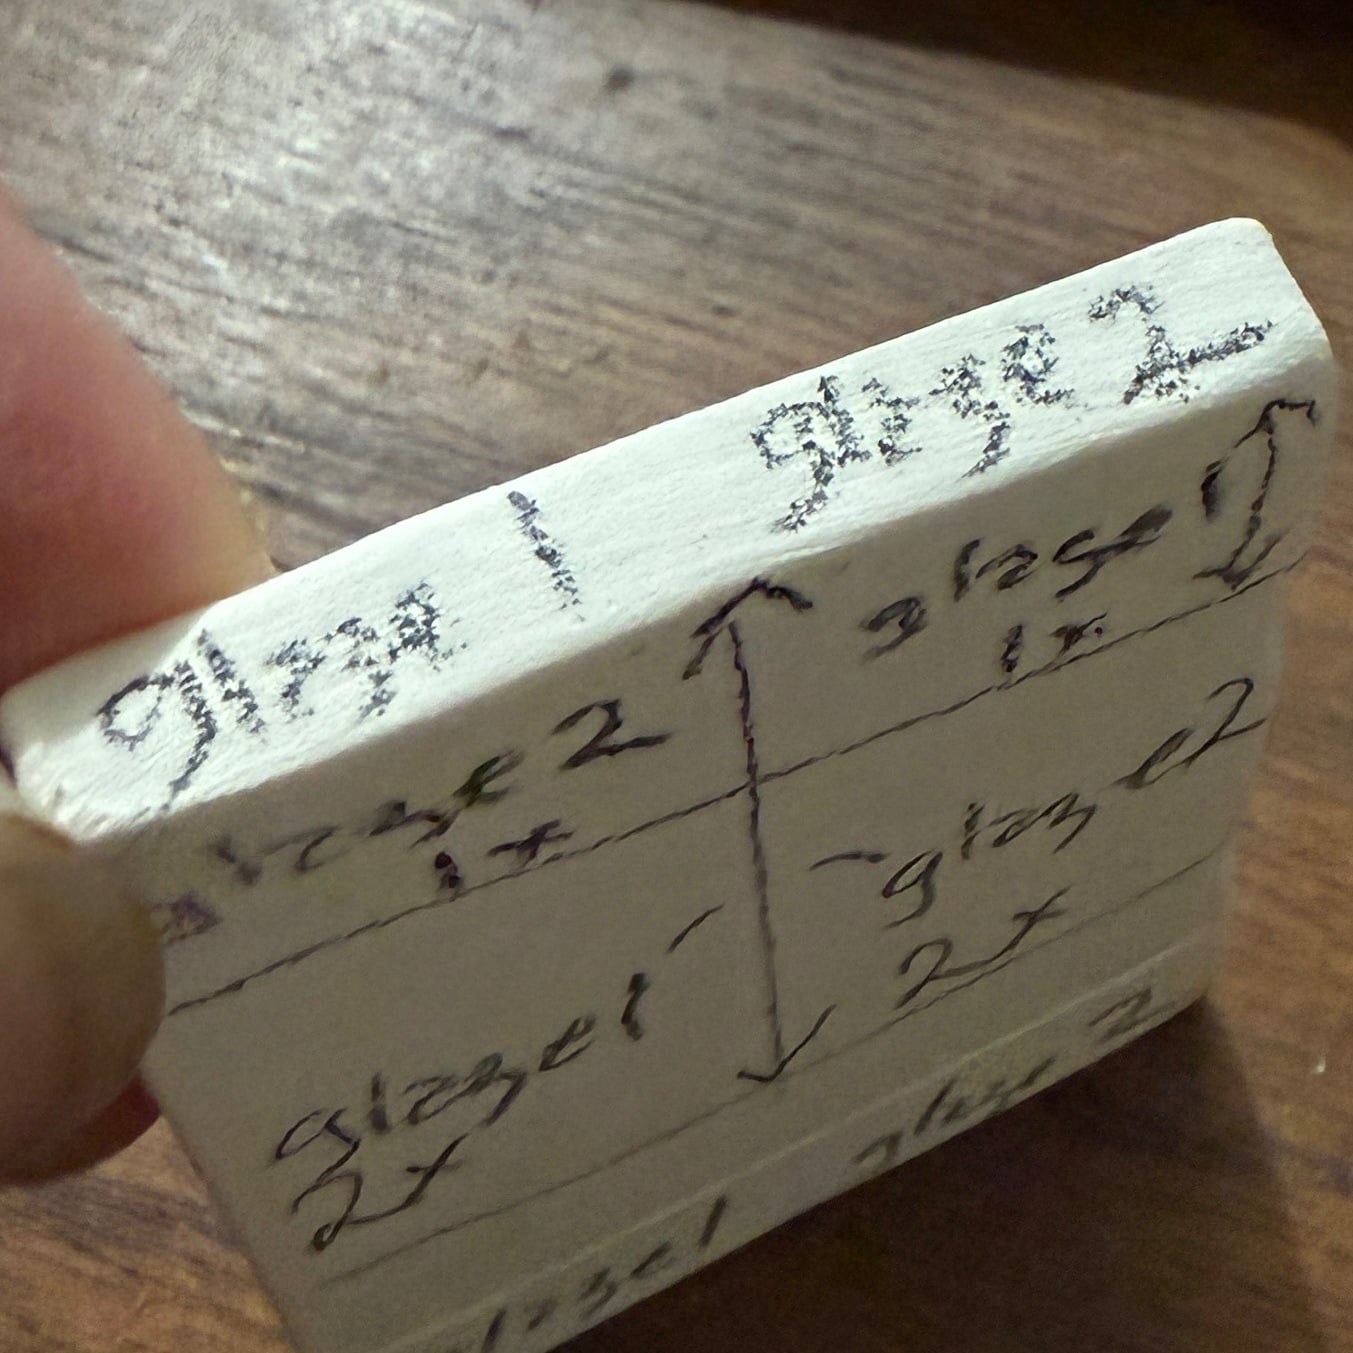 glaze 1 glaze 2
glaze 2 glaze 1
1x 1x
glaze 1 glaze 2
2x 2x
glaze 1 glaze 2